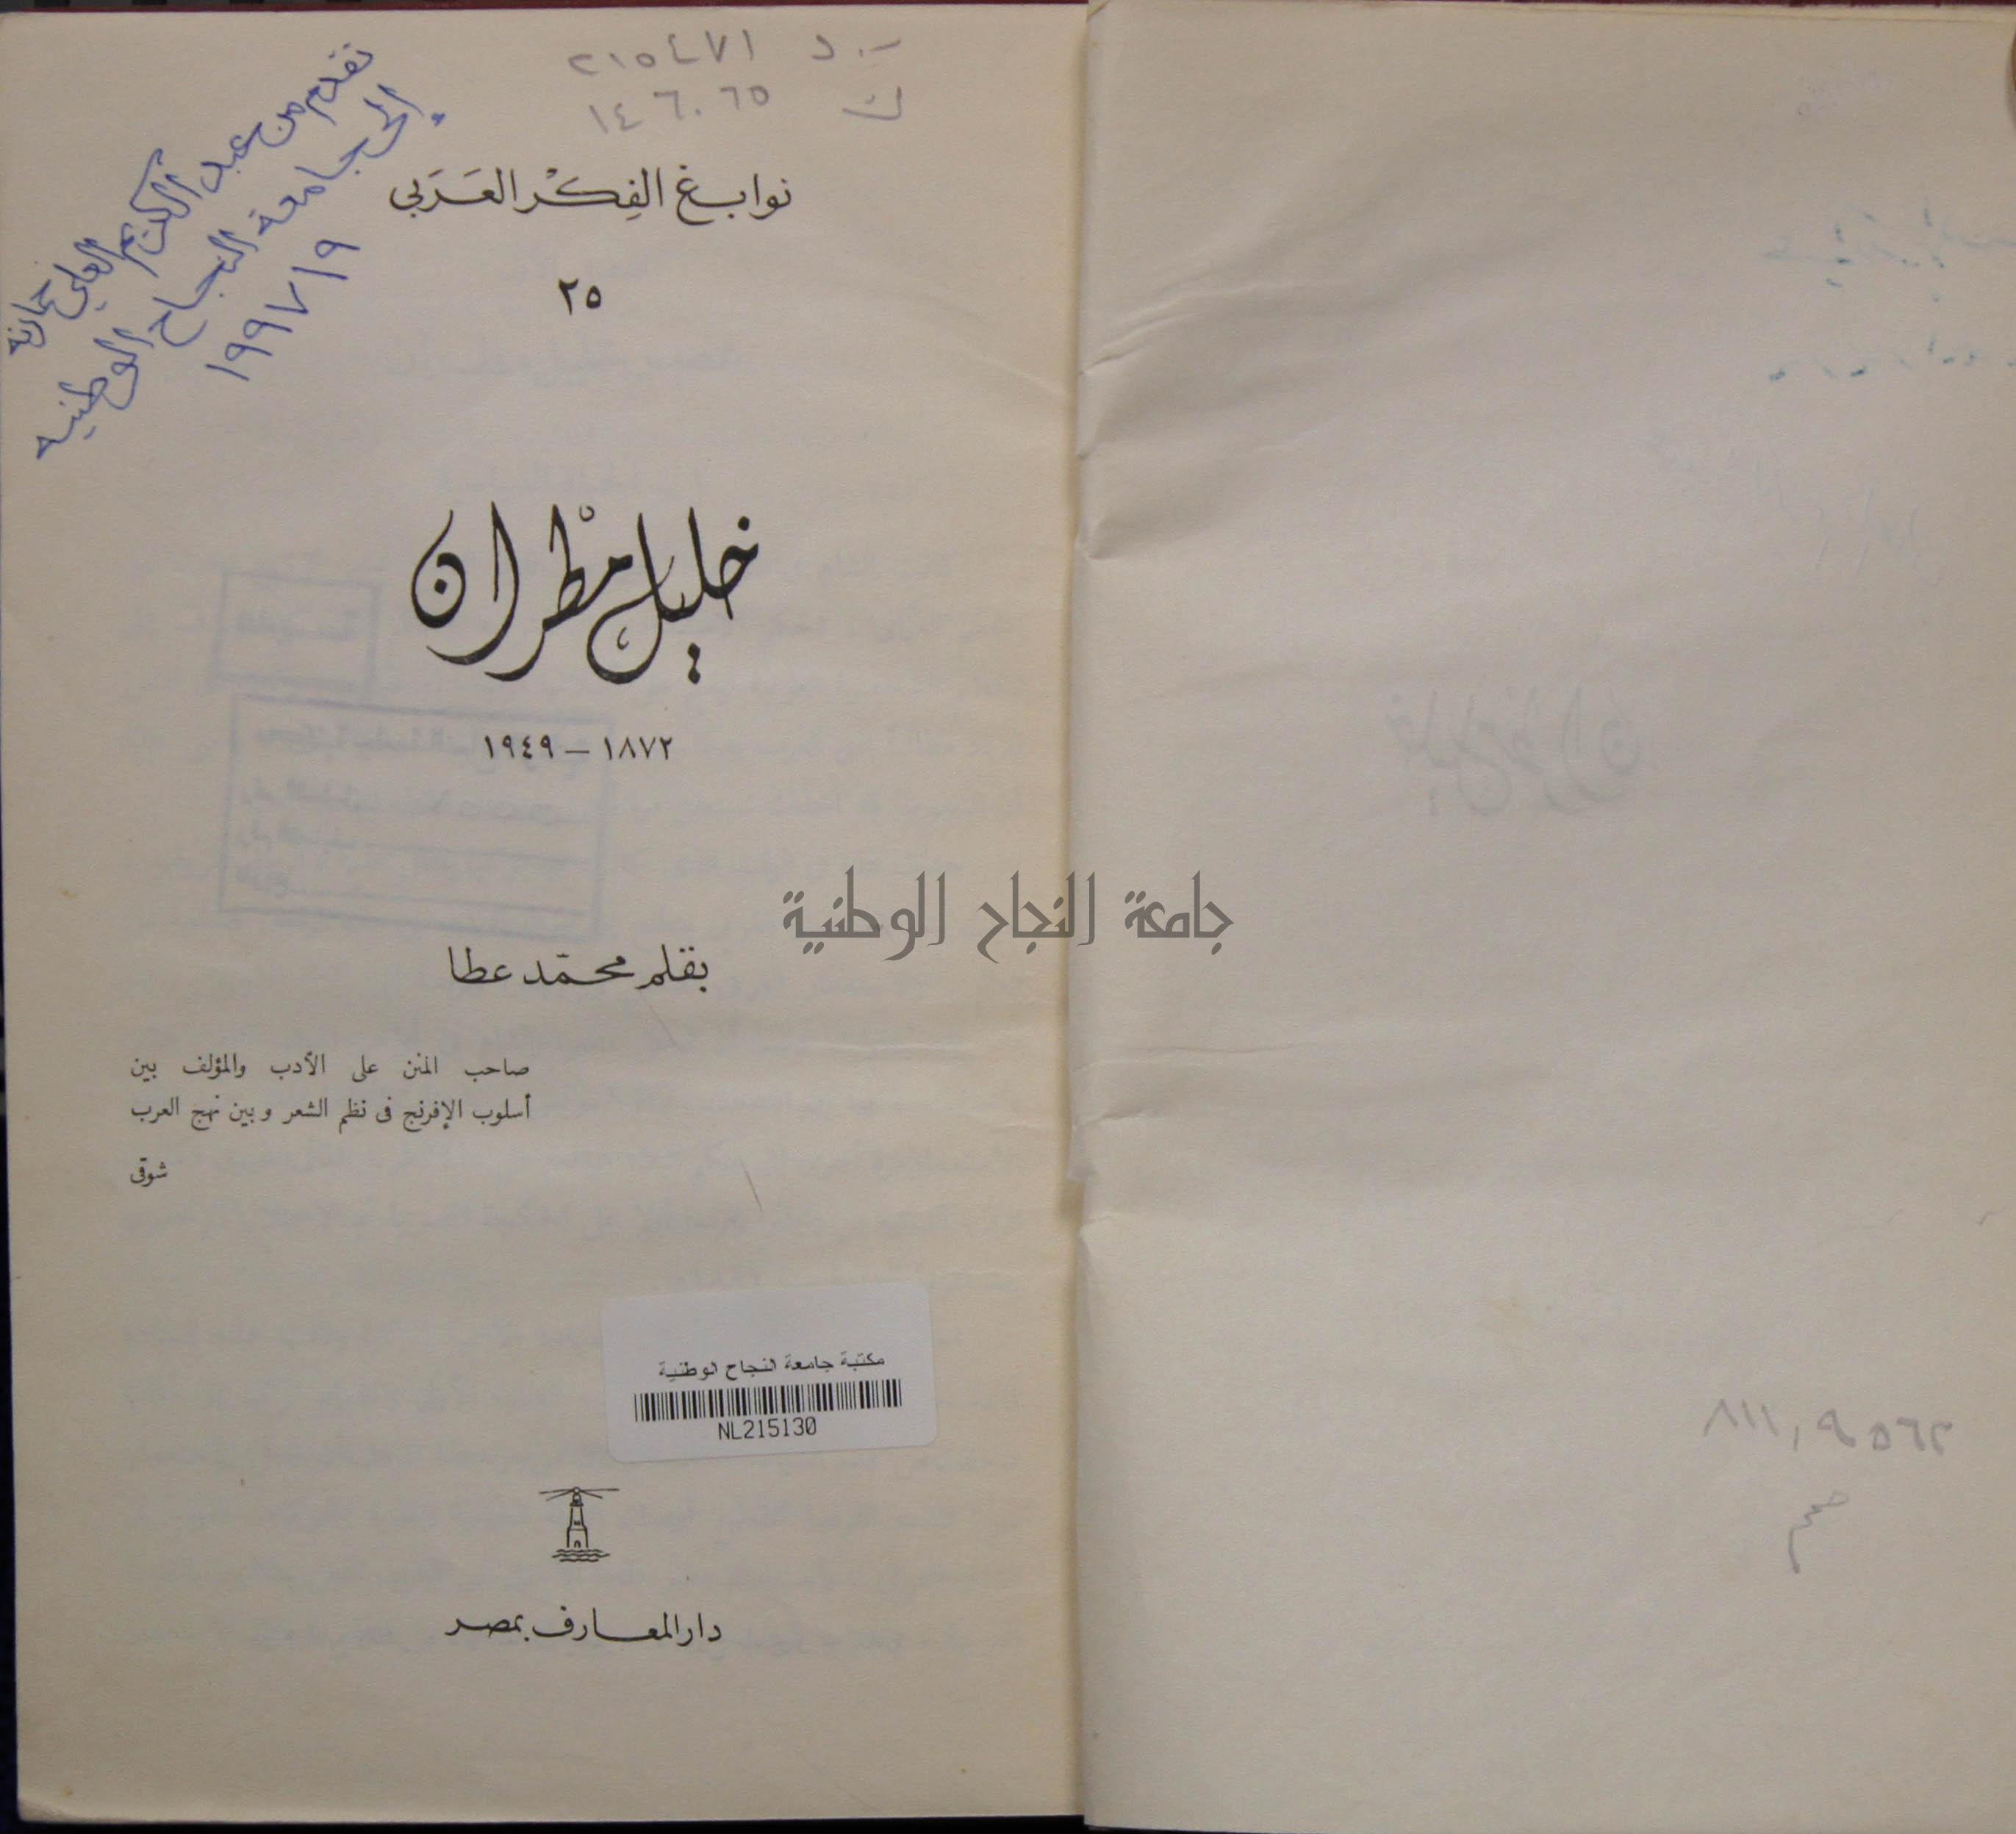 ب. د ٢١٥٤٧١
ك ١٤٦٠٦٥
تقدم من عبد الكريم العلي
إلى جامعة النجاح الوطنيه
١٩٩٧/٩
نوابغ الفِكْر العَرَبي
٢٥
خليل مطْران
١٨٧٢ – ١٩٤٩
بقلم محمّد عطا
صاحب المنن على الأدب والمؤلف بين
أسلوب الإفرنج فى نظم الشعر وبين نهج العرب
شوقى
مكتبة جامعة النجاح الوطنية
NL215130
دار المعارف بمصر
جامعة النجاح الوطنية